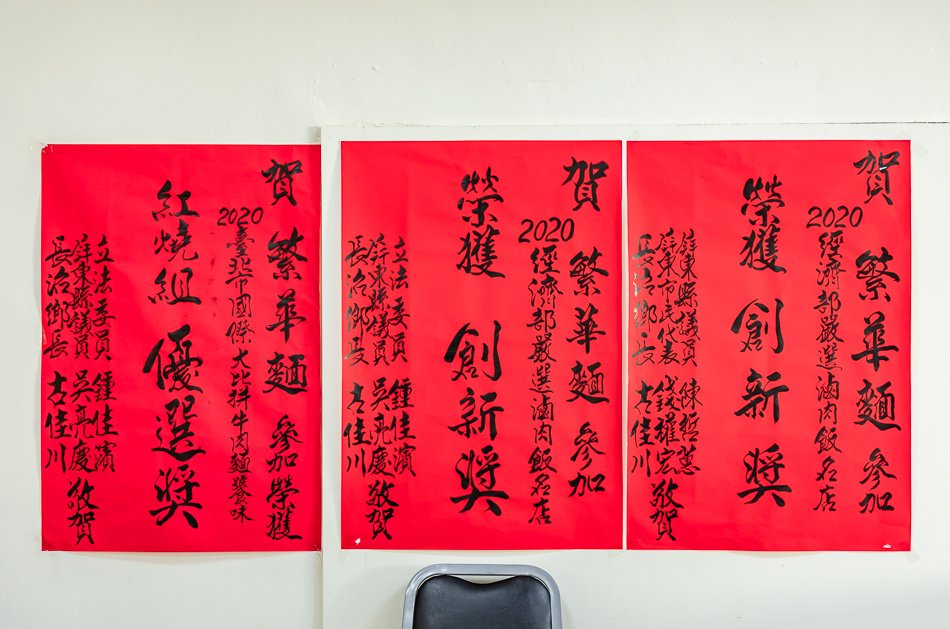 賀 繁華麵 參加
2020經濟部嚴選滷肉飯名店
榮獲 創新獎
屏東縣議員 陳哲蕙
屏東市民代表 錢權宏
長治鄉長 古佳川
敬賀
賀 繁華麵 參加
2020經濟部嚴選滷肉飯名店
榮獲 創新獎
立法委員 鍾佳濱
屏東縣議員 吳亮慶
長治鄉長 古佳川
敬賀
賀 繁華麵 參加榮獲
2020臺北市國際大比拌牛肉麵
紅燒組 優選獎
立法委員 鍾佳濱
屏東縣議員 吳亮慶
長治鄉長 古佳川
敬賀